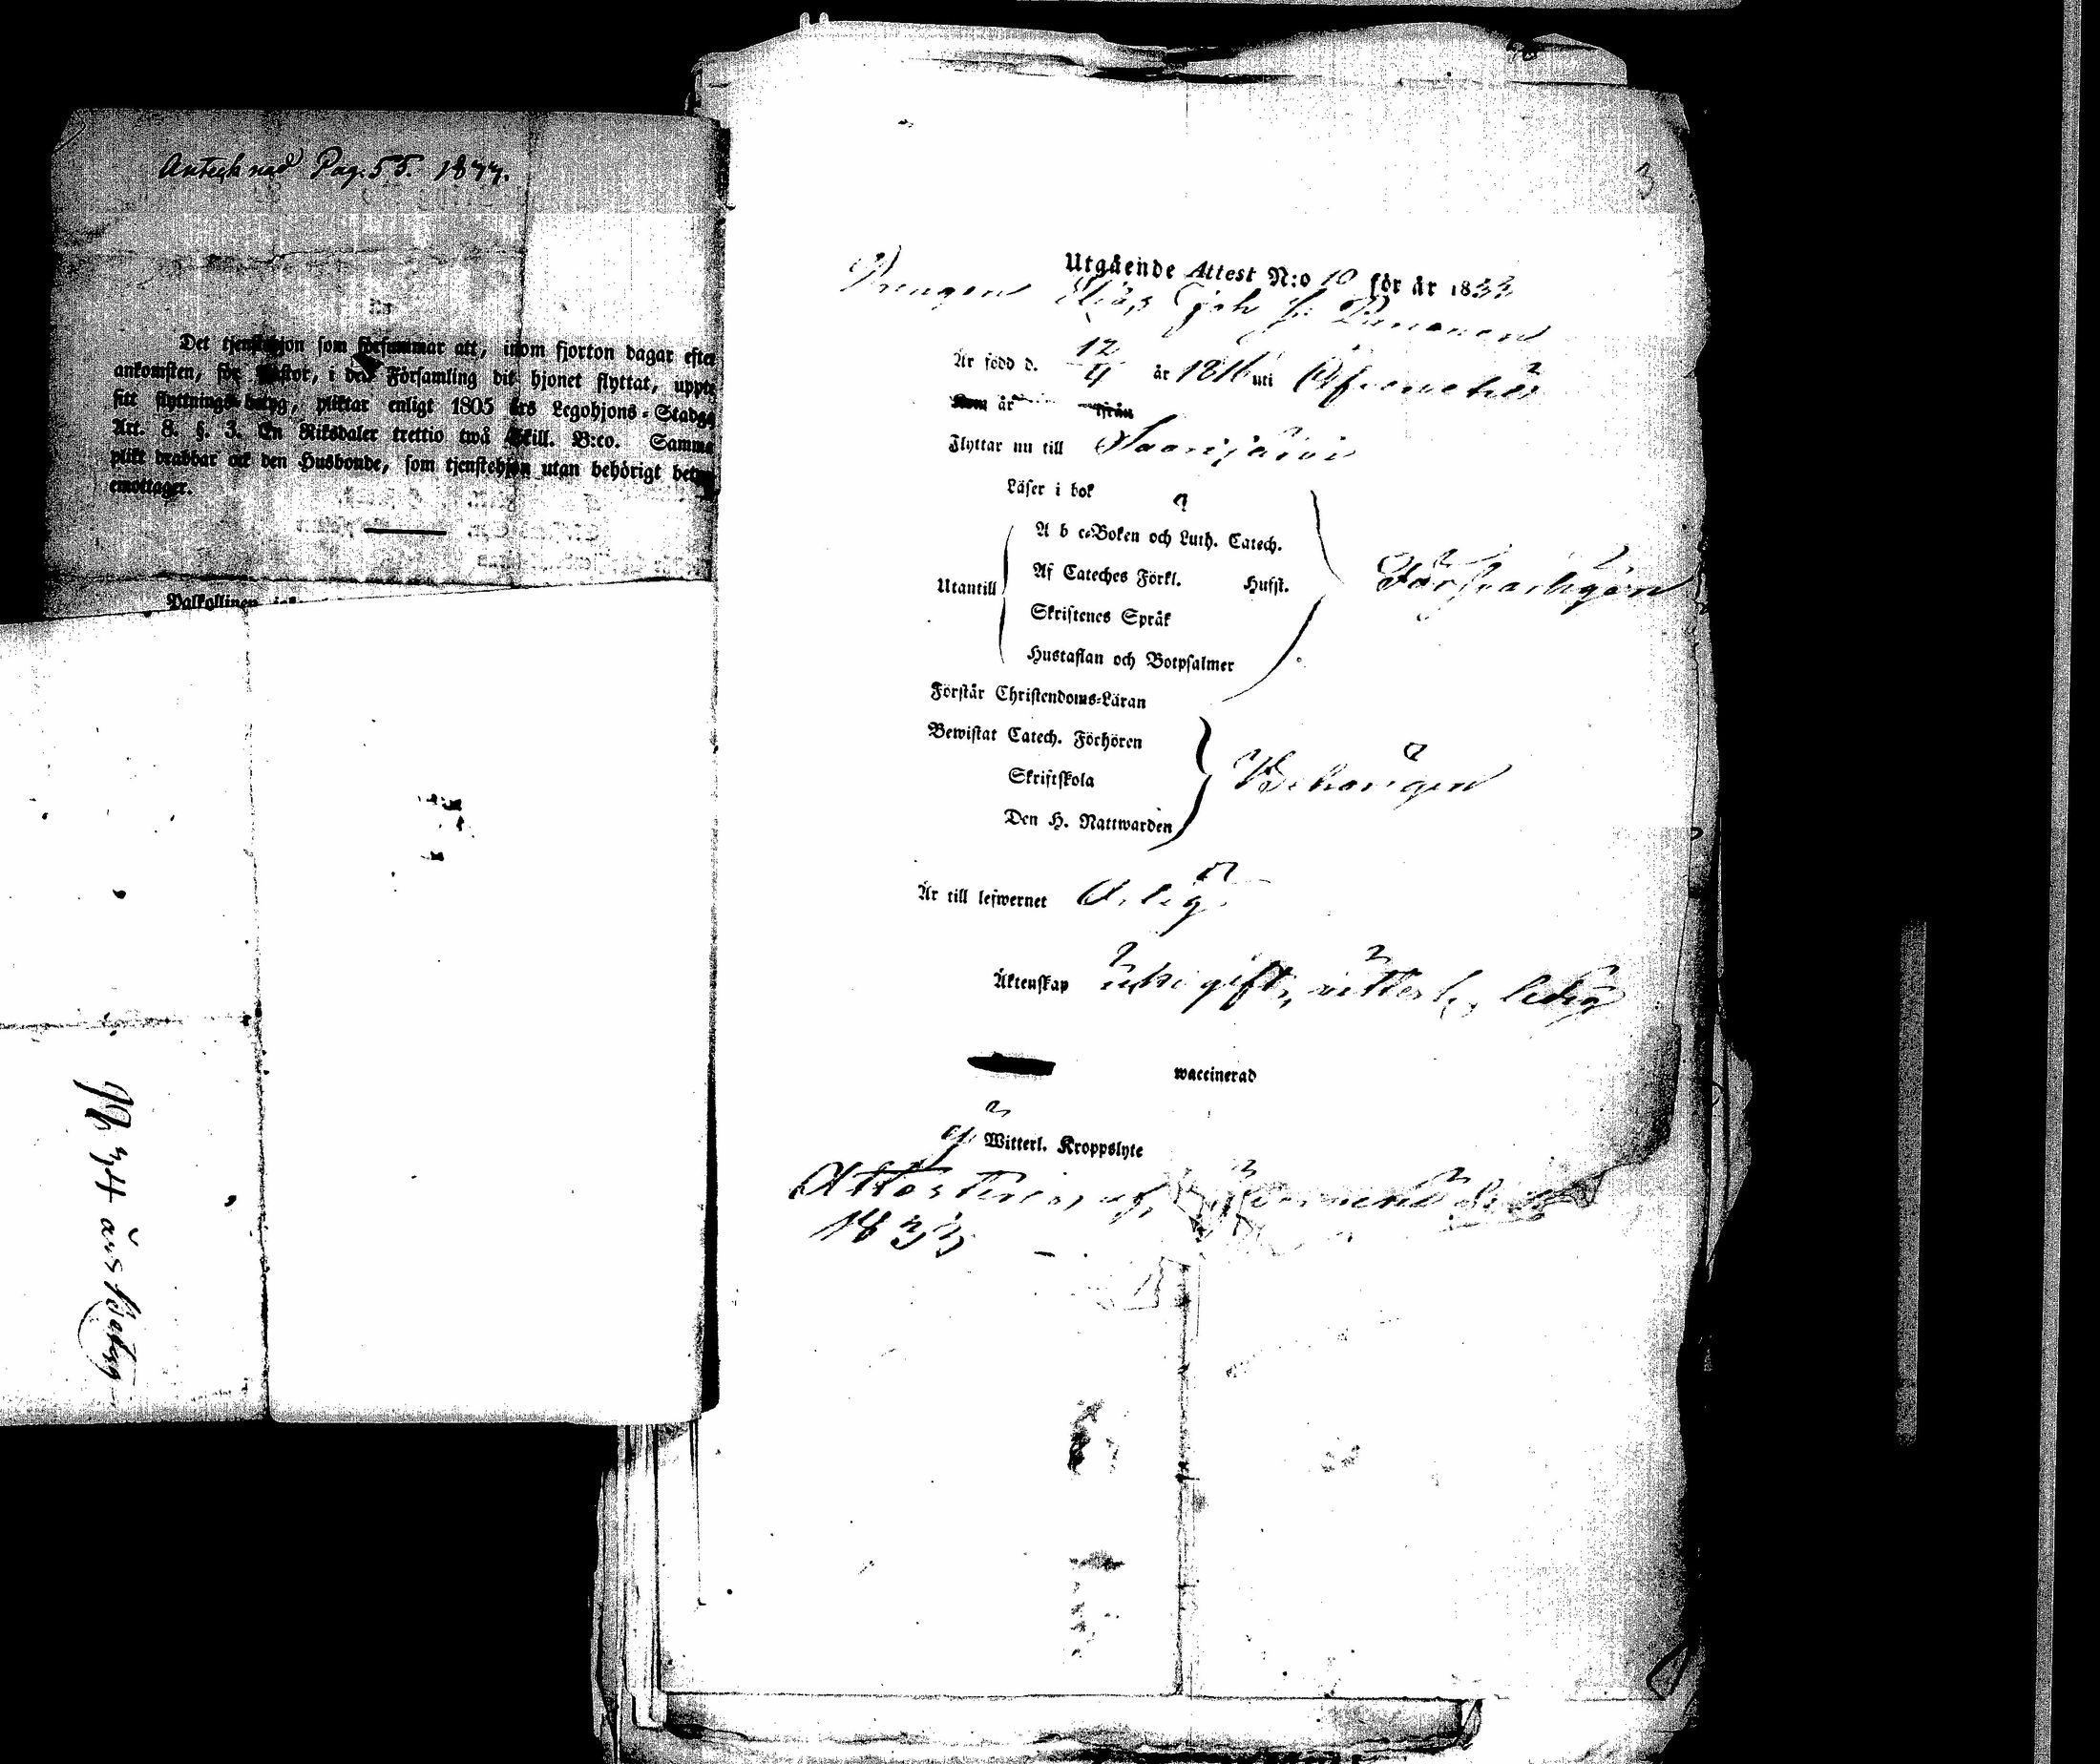 Antecknad Pag. 55. 1877.
Det tjenstehjon som försummar att, inom fjorton dagar efter
ankomsten, för Pastor, i den Församling dit hjonet flyttat, uppte
sitt flyttnings-betyg, pliktar enligt 1805 års Legohjons-Stadga
Art. 8. §. 3. En Riksdaler trettio twå Skill. B:co. Samma
plikt drabbar ock den Husbonde, som tjenstehjon utan behörigt betyg
emottager.
Palkollinen
34 års Betyg
3
Utgående Attest N:o 10 för år 1833
Drengen Elias Joh
Är född d. 12/4 år 1816 uti
Kom år ifrån
Flyttar nu till Saarijärvi
Läser i bok
A b c-Boken och Luth. Catech.
Af Cateches Förkl. Husst.
Utantill
Skriftenes Språk
Hustaflan och Botpsalmer
Försvarligen
Förstår Christendoms-Läran
Bewistat Catech. Förhören
Skriftskola
Behörigen
Den H. Nattwarden
Är till lefwernet Ärlig
Äktenskap icke gift, witterl. ledig
waccinerad
Witterl. Kroppslyte
Attesterar
1833